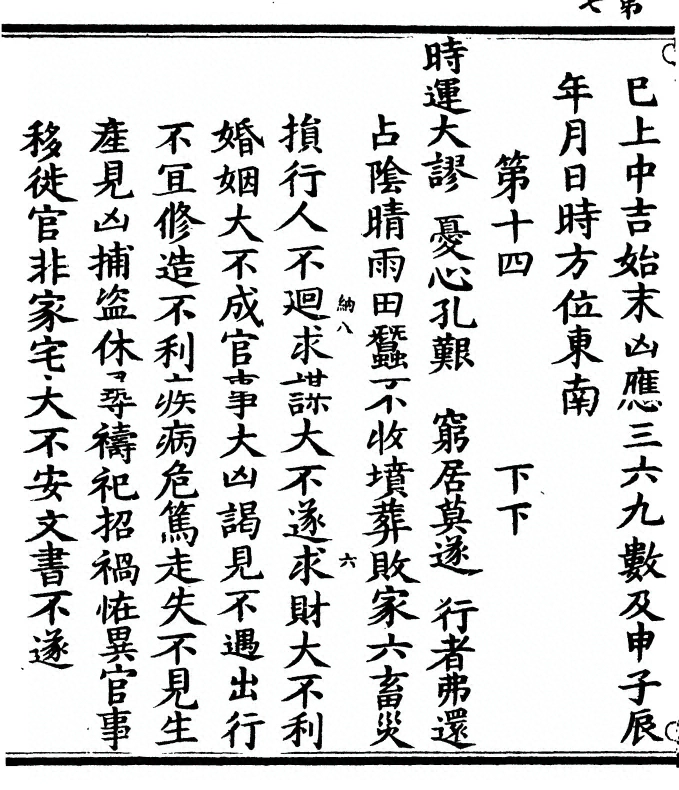 已上中吉始末凶應三六九數及申子辰
年月日時方位東南
第十四 下下
時運大謬 憂心孔艱 窮居莫遂 行者弗還
占陰晴雨田蠶不收墳葬敗家六畜災
損行人不迴求謀大不遂求財大不利
納八 六
婚姻大不成官事大凶謁見不遇出行
不宜修造不利疾病危篤走失不見生
產見凶捕盜休尋禱祀招禍恠異官事
移徙官非家宅大不安文書不遂